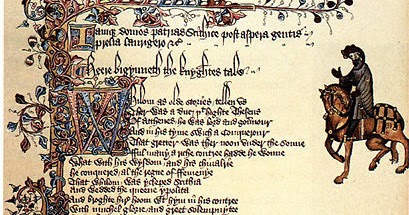 Iamq; domos patrias Scithice post aspera gentis
Prelia laurigero &c
Heere bigynneth the knyghtes tale
Whilom as olde stories tellen us
Ther was a duc þt highte Theseus
Of Atthenes he was lord and gouernour
And in his tyme swich a conquerour
That gretter was ther noon under the sonne
Ful many a riche contree hadde he wonne
What with his wysdom and his chiualrie
He conquered al the regne of ffemenye
That whilom was ycleped Scithia
And wedded the queene ypolita
And broghte hir hoom wt hym in his contree
With muchel glorie and greet solempnytee